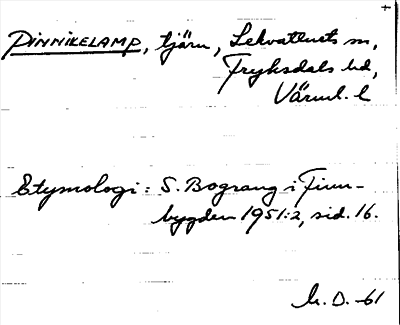 +
PINNIKELAMP, tjärn, Lekvattnets sn,
Fryksdals hd,
Värml. l
Etymologi: S. Bograng i Finn-
bygden 1951:2, sid. 16.
h. D. -61